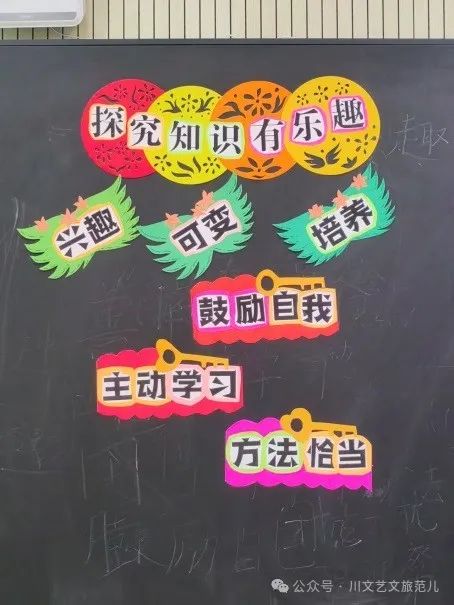 探究知识有乐趣
趣
兴趣 可变 培养
鼓励自我
主动学习
方法恰当
公众号·川文艺文旅范儿